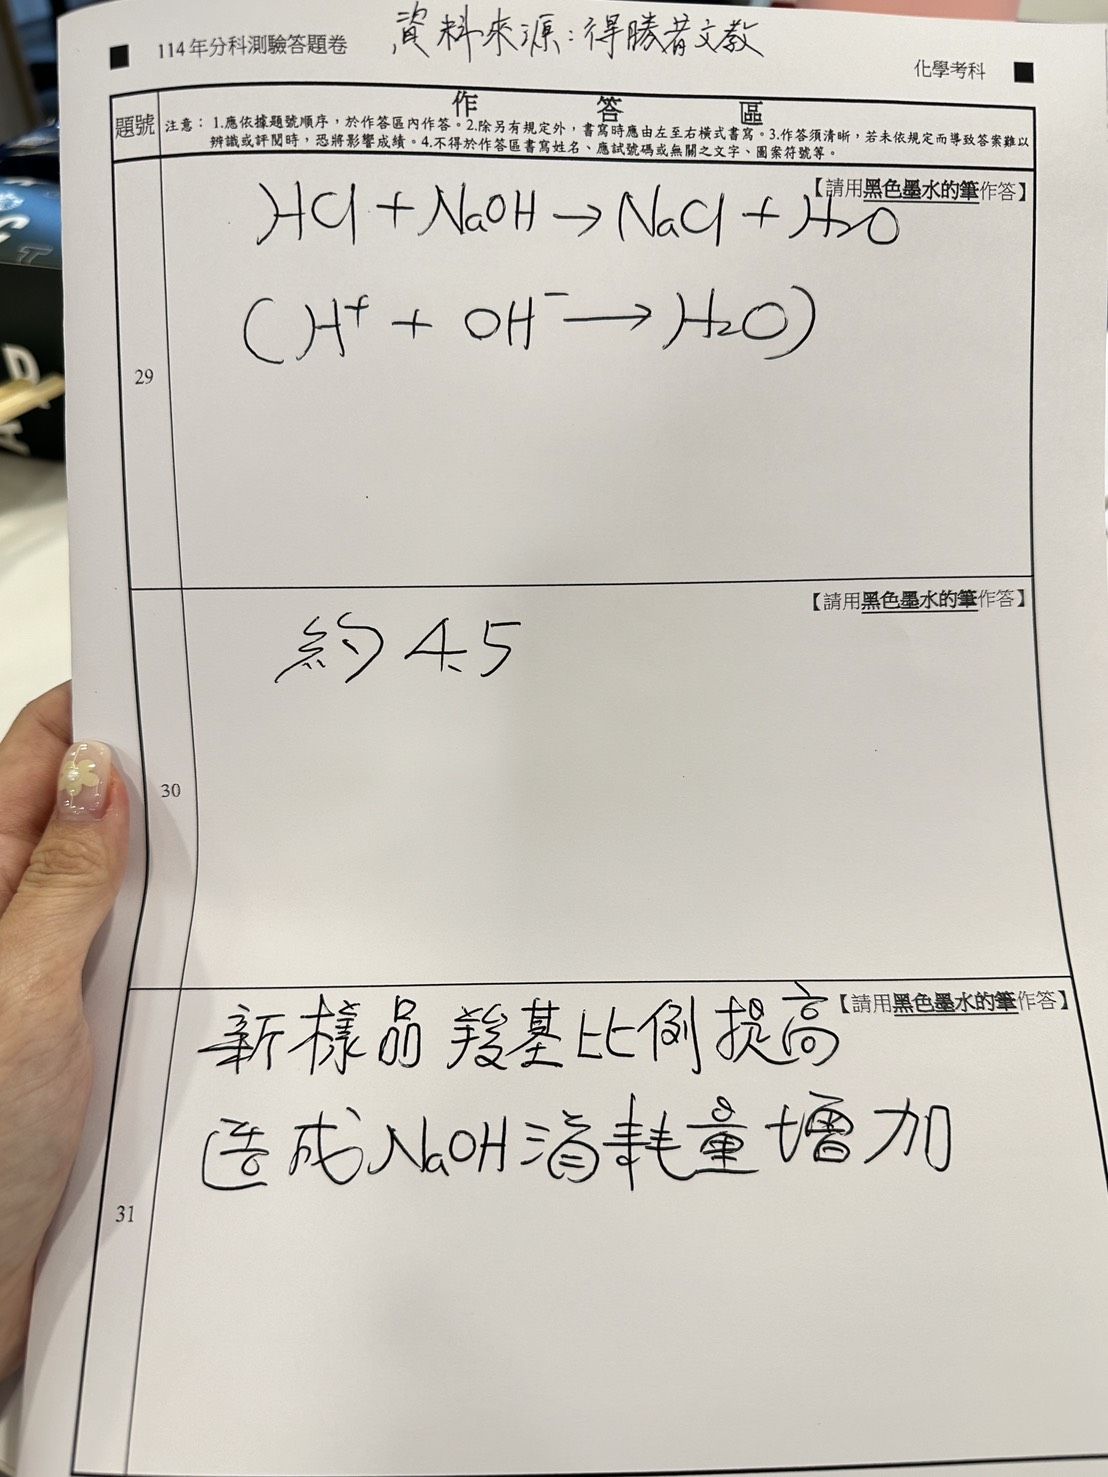 資料來源:得勝者文教
114年分科測驗答題卷
化學考科
作答區
題號
注意：1.應依據題號順序，於作答區內作答。2.除另有規定外，書寫時應由左至右橫式書寫。3.作答須清晰，若未依規定而導致答案難以
辨識或評閱時，恐將影響成績。4.不得於作答區書寫姓名、應試號碼或無關之文字、圖案符號等。
【請用黑色墨水的筆作答】
HCl + NaOH → NaCl + H₂O
(H⁺ + OH⁻ → H₂O)
29
【請用黑色墨水的筆作答】
約 4.5
30
【請用黑色墨水的筆作答】
新樣品羧基比例提高
造成NaOH消耗量增加
31